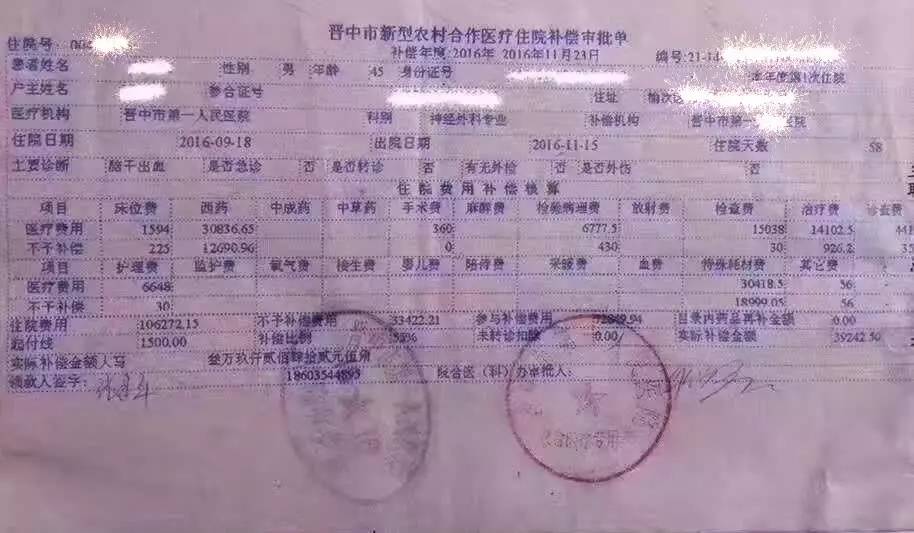 晋中市新型农村合作医疗住院补偿审批单
住院号: 00 补偿年度:2016年 2016年11月23日 编号:21-14
患者姓名 性别 男 年龄 45 身份证号 本年度第1次住院
户主姓名 参合证号 住址 榆次区
医疗机构 晋中市第一人民医院 科别 神经外科专业 补偿机构 晋中市第一 医院
住院日期 2016-09-18 出院日期 2016-11-15 住院天数 58
主要诊断 脑干出血 是否急诊 否 是否转诊 否 有无外检 否 是否外伤 否
住院费用补偿核算
项目 床位费 西药 中成药 中草药 手术费 麻醉费 检验病理费 放射费 检查费 治疗费 诊查费
医疗费用 1594 30836.65 360 6777.5 15038 14102.5 441
不予补偿 225 12690.96 0 430 30 926.2 35
项目 护理费 监护费 氧气费 接生费 婴儿费 陪侍费 采暖费 血费 特殊耗材费 其它费
医疗费用 6648 30418.5 56
不予补偿 30 18999.05 56
住院费用 106272.15 不予补偿费用 33422.21 参与补偿费用 849.94 目录内药品再补金额 0.00
起付线 1500.00 补偿比例 55% 未转诊扣除 0.00 实际补偿金额 39242.50
实际补偿金额大写 叁万玖仟贰佰肆拾贰元伍角
领款人签字: 18603544895 院合医（科）办审批人:
合医疗专用